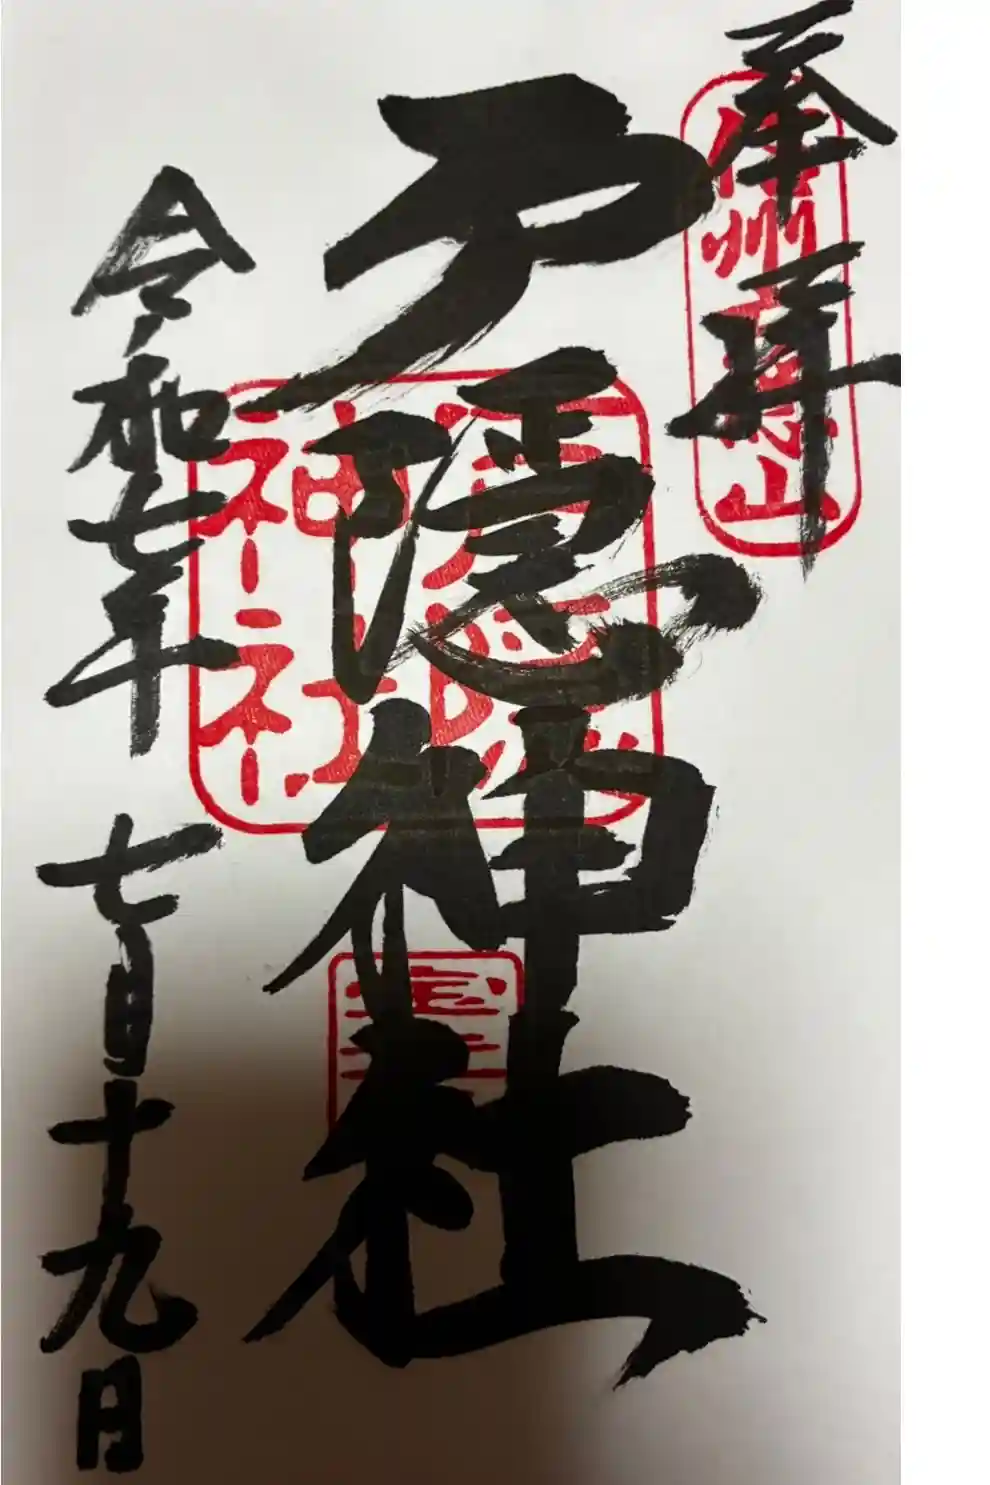 奉拝
信州戸隠山
戸隠神社
戸隠
神社
令和七年 七月十九日